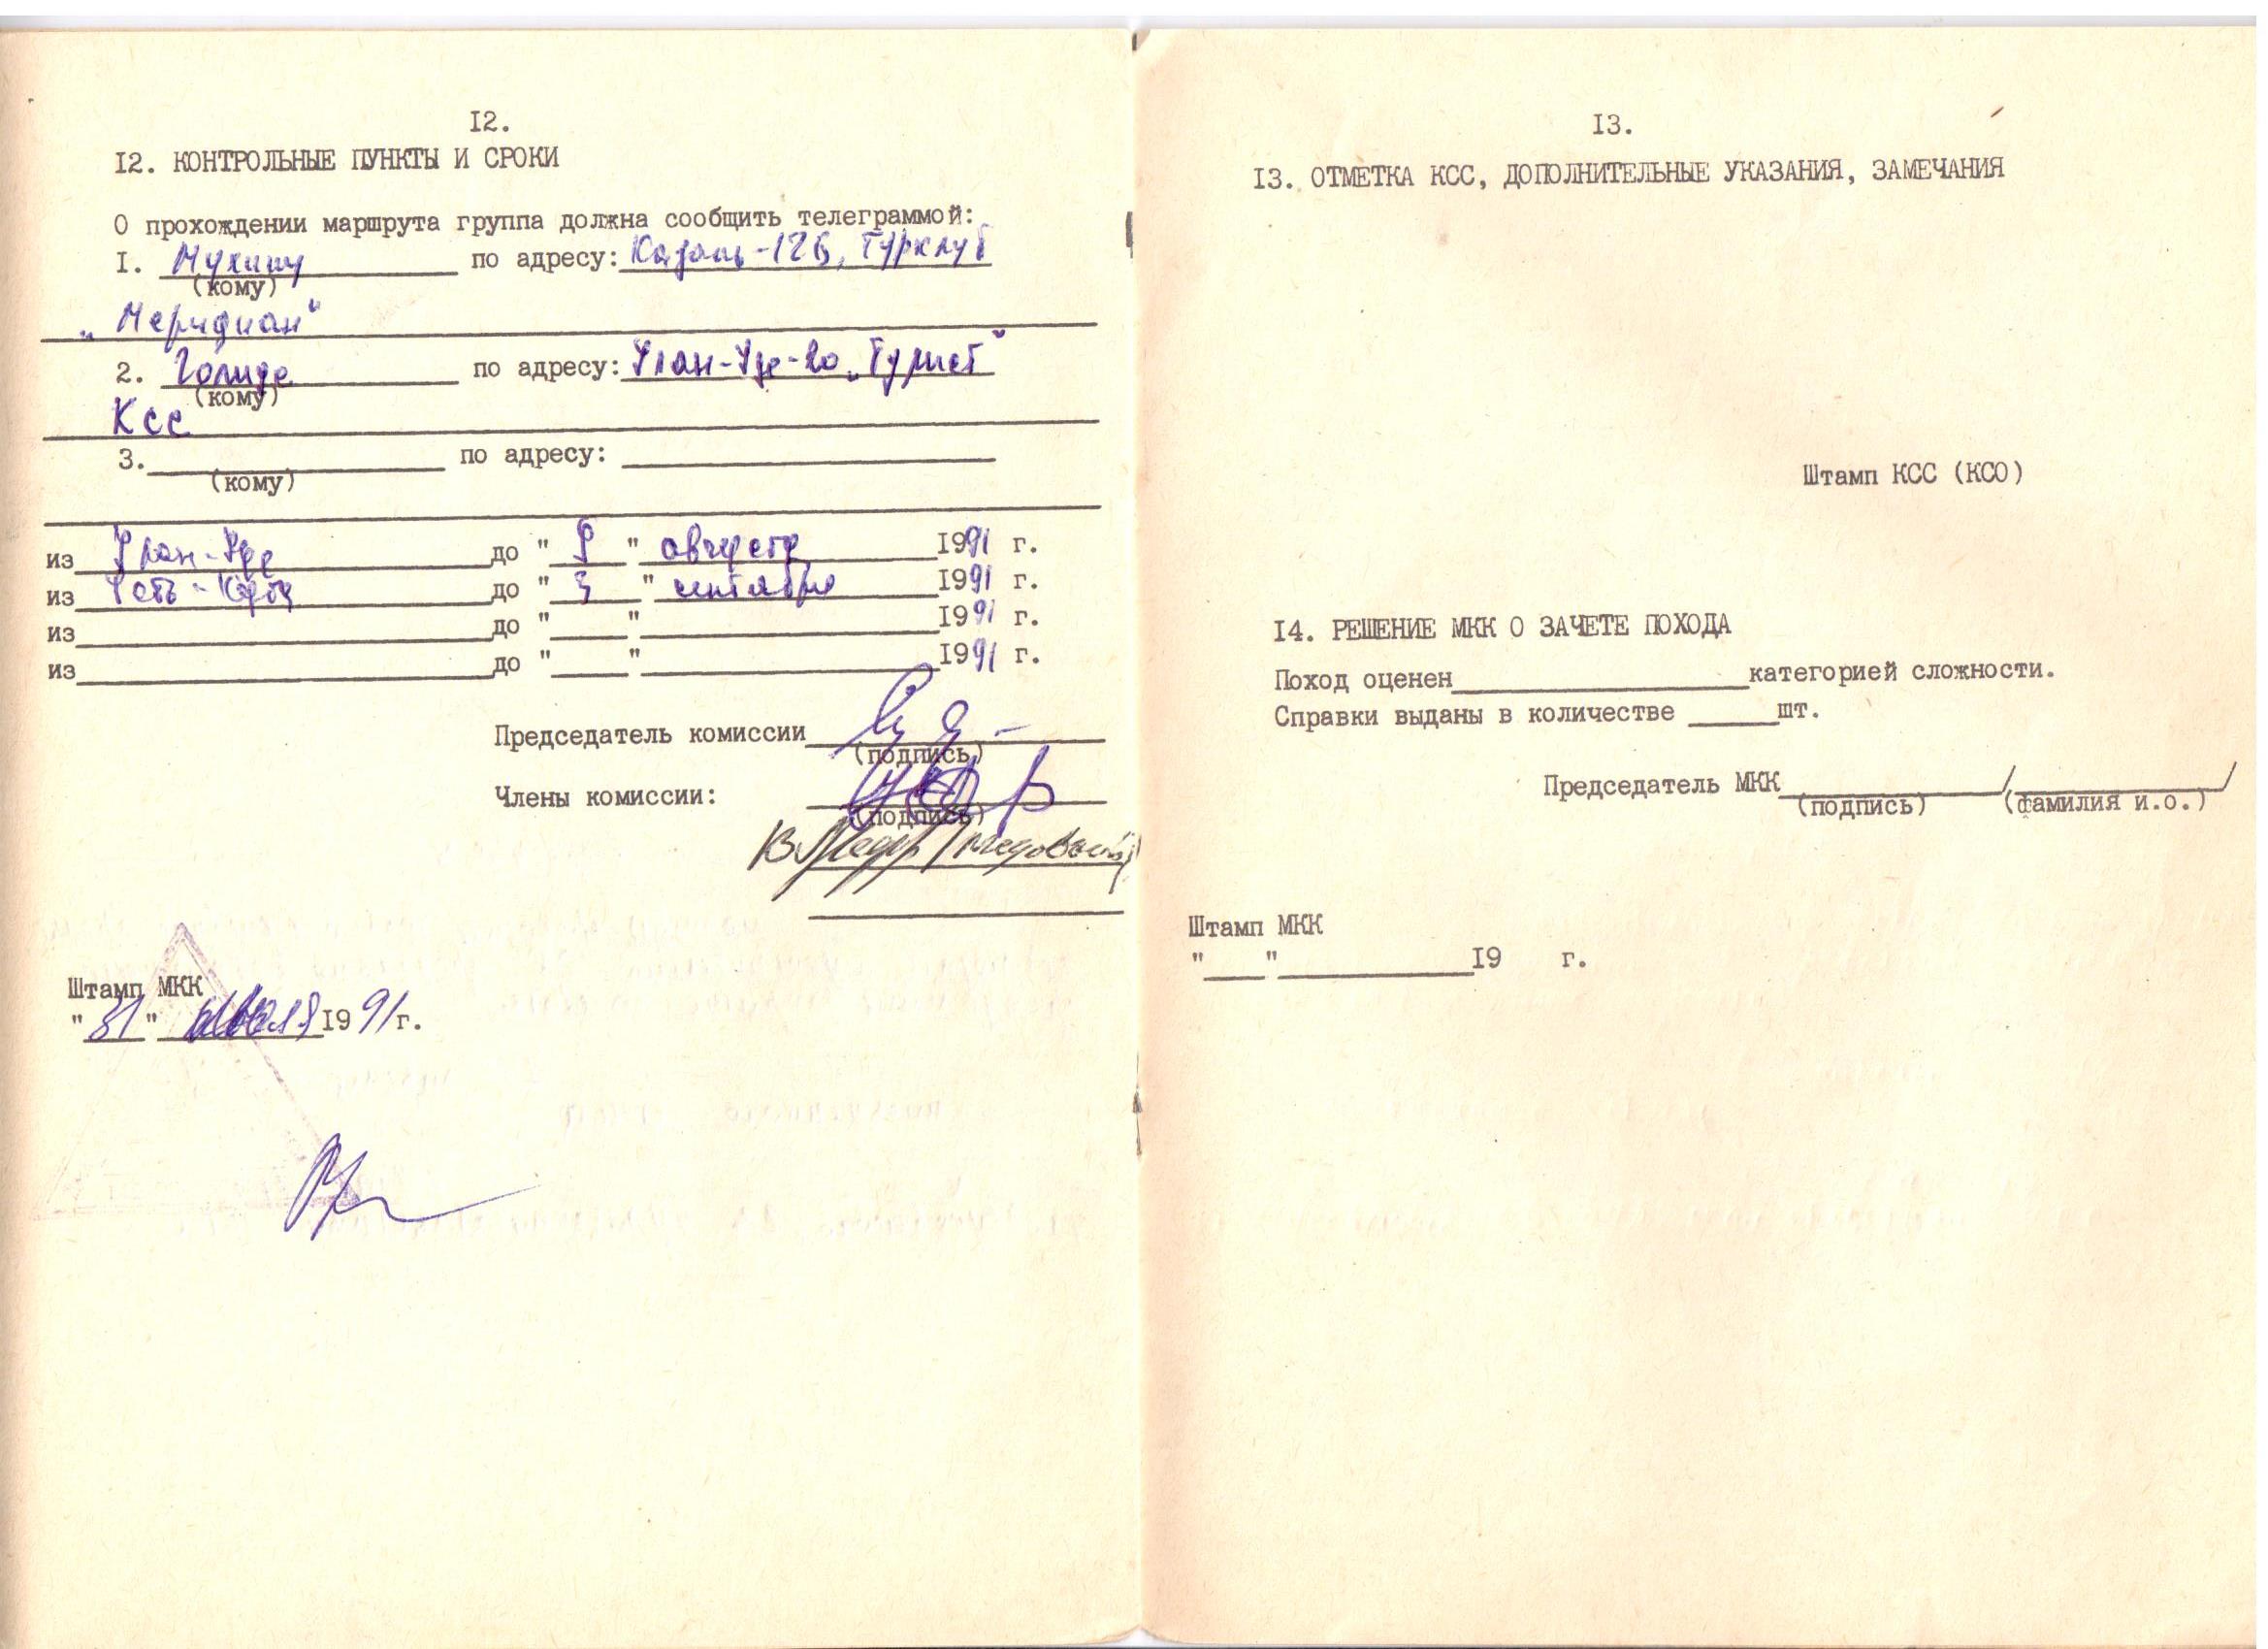 I2.
I2. КОНТРОЛЬНЫЕ ПУНКТЫ И СРОКИ
О прохождении маршрута группа должна сообщить телеграммой:
I. Мухину по адресу: Казань-126, Турклуб
(кому)
„Меридиан“
2. Голиде по адресу: Улан-Удэ-20 „Турист“
(кому)
КСС
3. по адресу:
(кому)
из Улан-Удэ до " " августа 1991 г.
из Усть-Карта до " 3 " сентября 1991 г.
из до " " 1991 г.
из до " " 1991 г.
Председатель комиссии
(подпись)
Члены комиссии:
(подпись)
Штамп МКК
"31" июля 1991 г.
I3.
I3. ОТМЕТКА КСС, ДОПОЛНИТЕЛЬНЫЕ УКАЗАНИЯ, ЗАМЕЧАНИЯ
Штамп КСС (КСО)
I4. РЕШЕНИЕ МКК О ЗАЧЕТЕ ПОХОДА
Поход оценен категорией сложности.
Справки выданы в количестве шт.
Председатель МКК / /
(подпись) (фамилия и.о.)
Штамп МКК
" " I9 г.